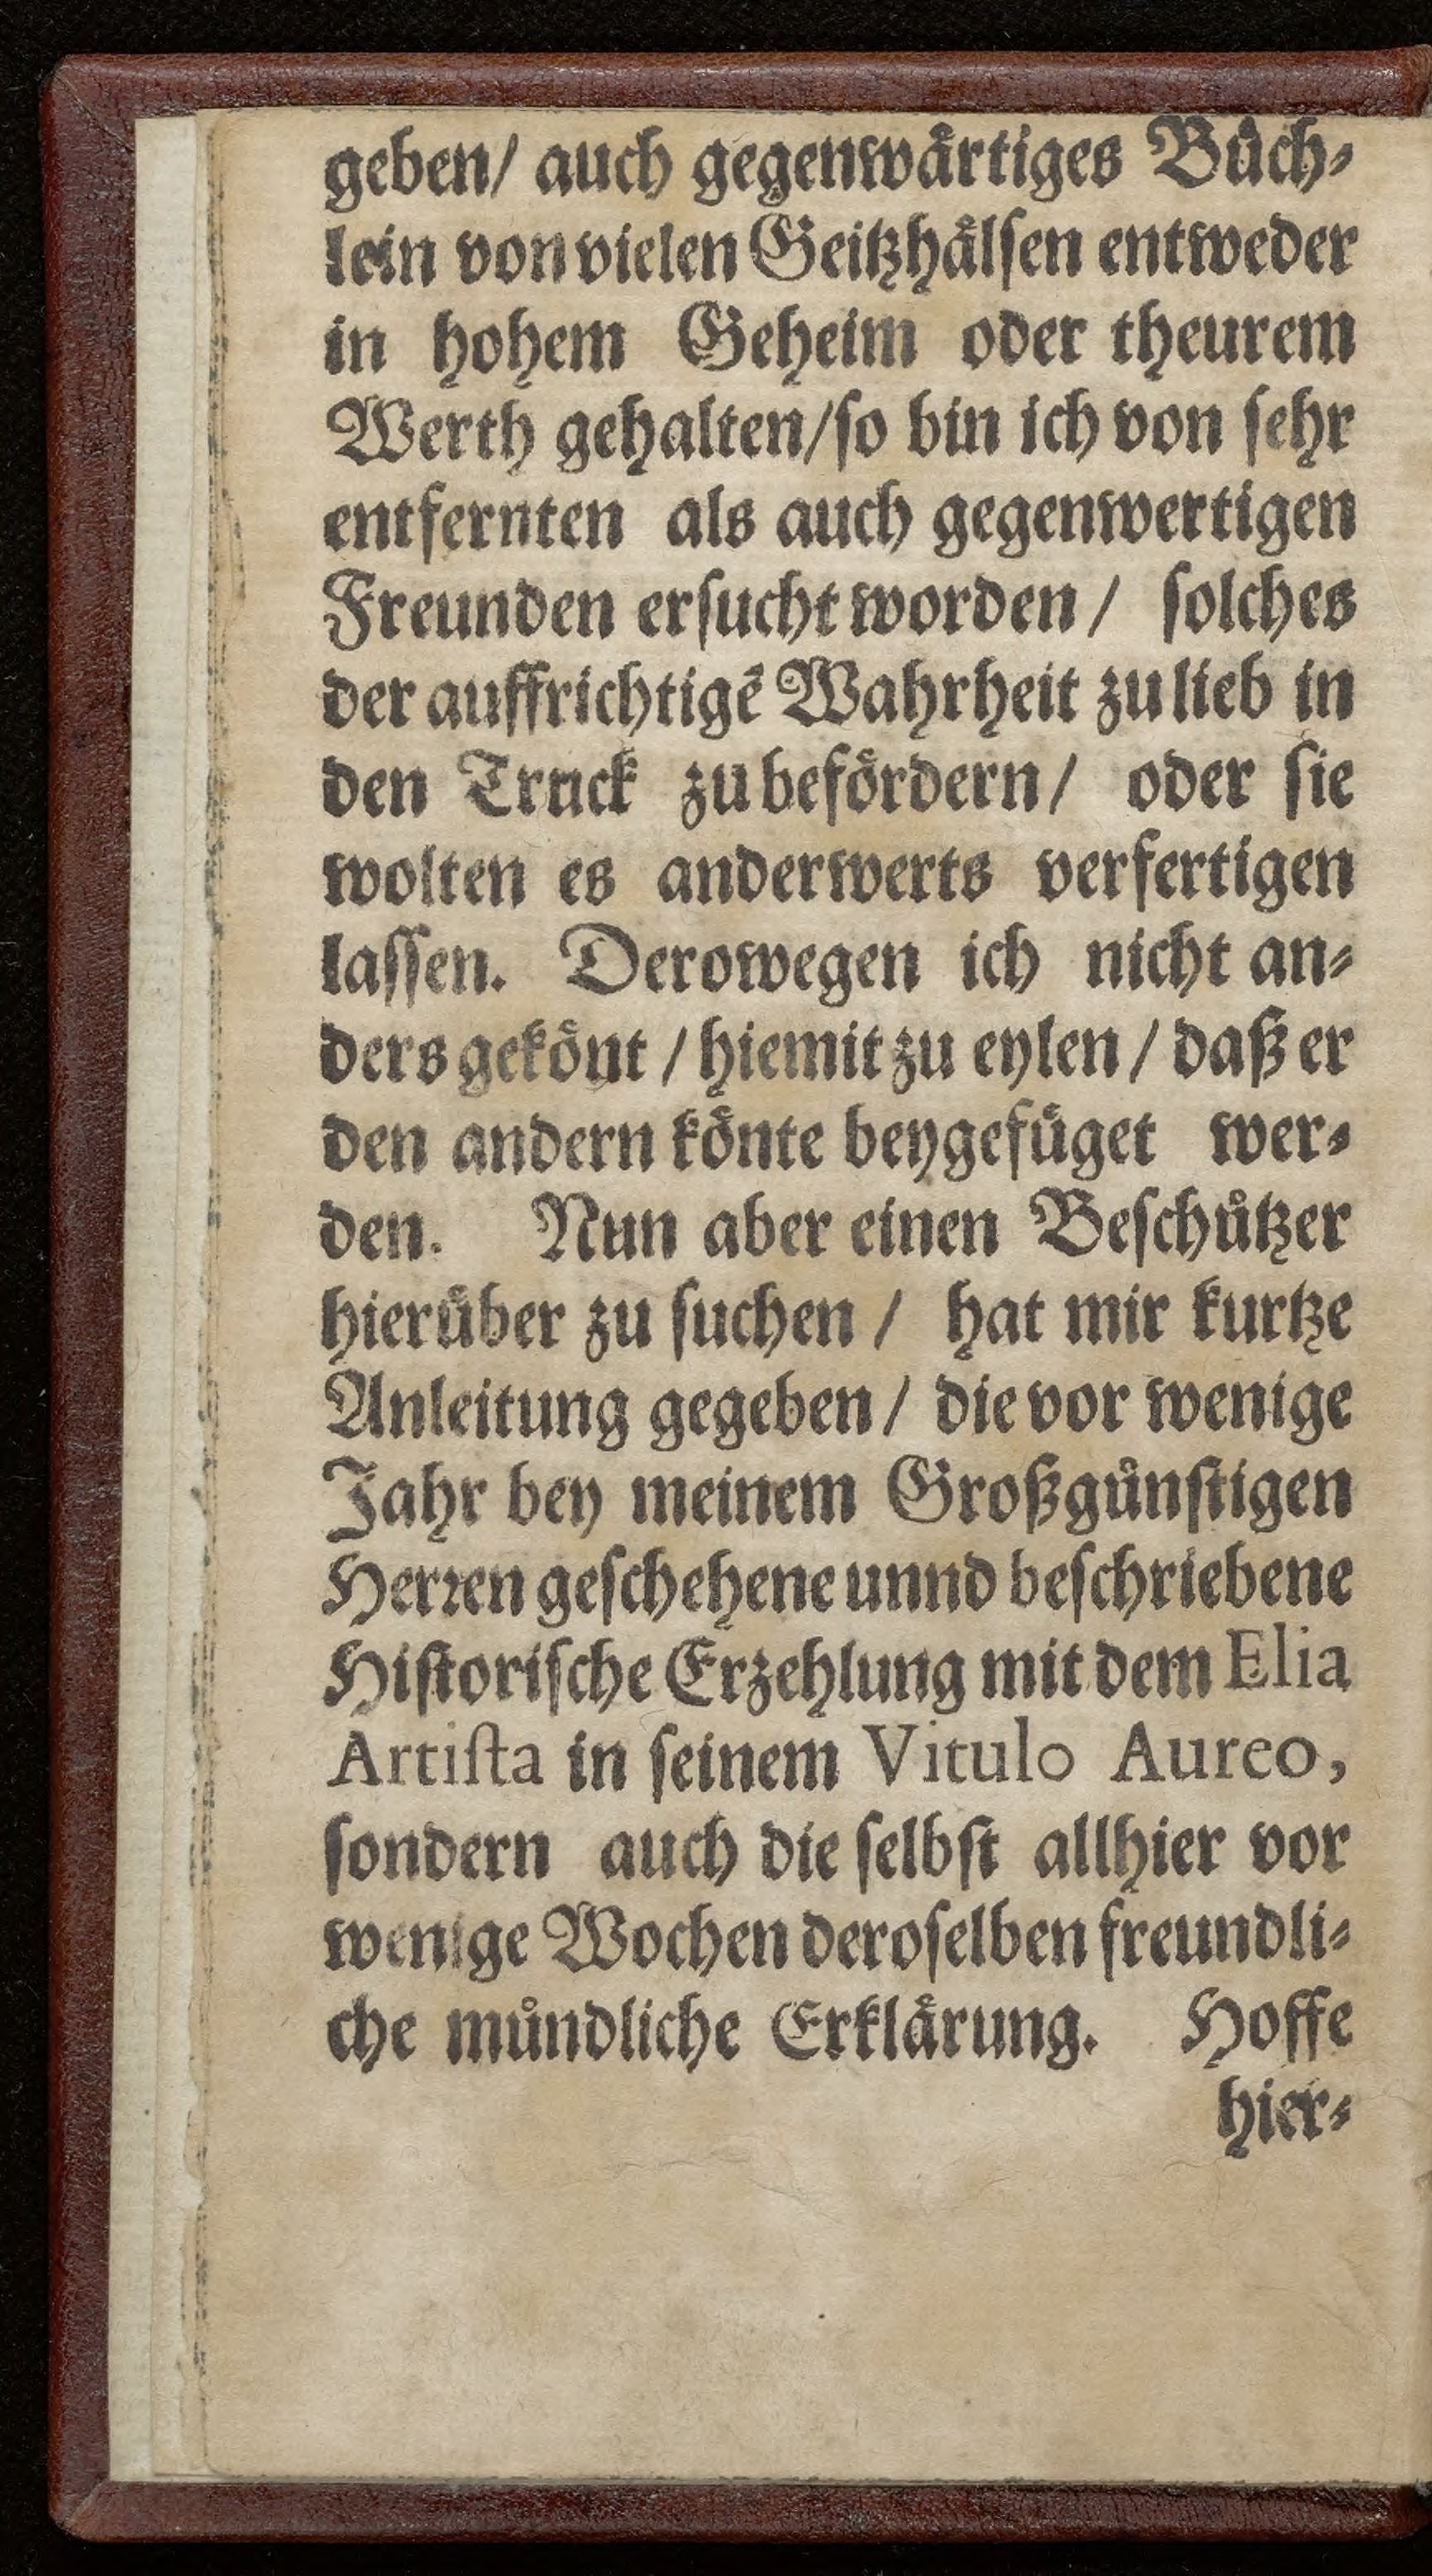 geben/ auch gegenwaͤrtiges Buͤch⸗
lein von vielen Geitzhaͤlſen entweder
in hohem Geheim oder theurem
Werth gehalten/ſo bin ich von ſehr
entfernten als auch gegenwertigen
Freunden erſucht worden / ſolches
der auffrichtigẽ Wahrheit zu lieb in
den Truck zu befoͤrdern/ oder ſie
wolten es anderwerts verfertigen
laſſen. Derowegen ich nicht an⸗
ders gekoͤnt / hiemit zu eylen / daß er
den andern koͤnte beygefuͤget wer⸗
den. Nun aber einen Beſchuͤtzer
hieruͤber zu ſuchen / hat mir kurtze
Anleitung gegeben / die vor wenige
Jahr bey meinem Großguͤnſtigen
Herꝛen geſchehene unnd beſchriebene
Hiſtoriſche Erzehlung mit dem Elia
Artiſta in ſeinem Vitulo Aureo,
ſondern auch die ſelbſt allhier vor
wenige Wochen deroſelben freundli⸗
che muͤndliche Erklaͤrung. Hoffe
hier⸗